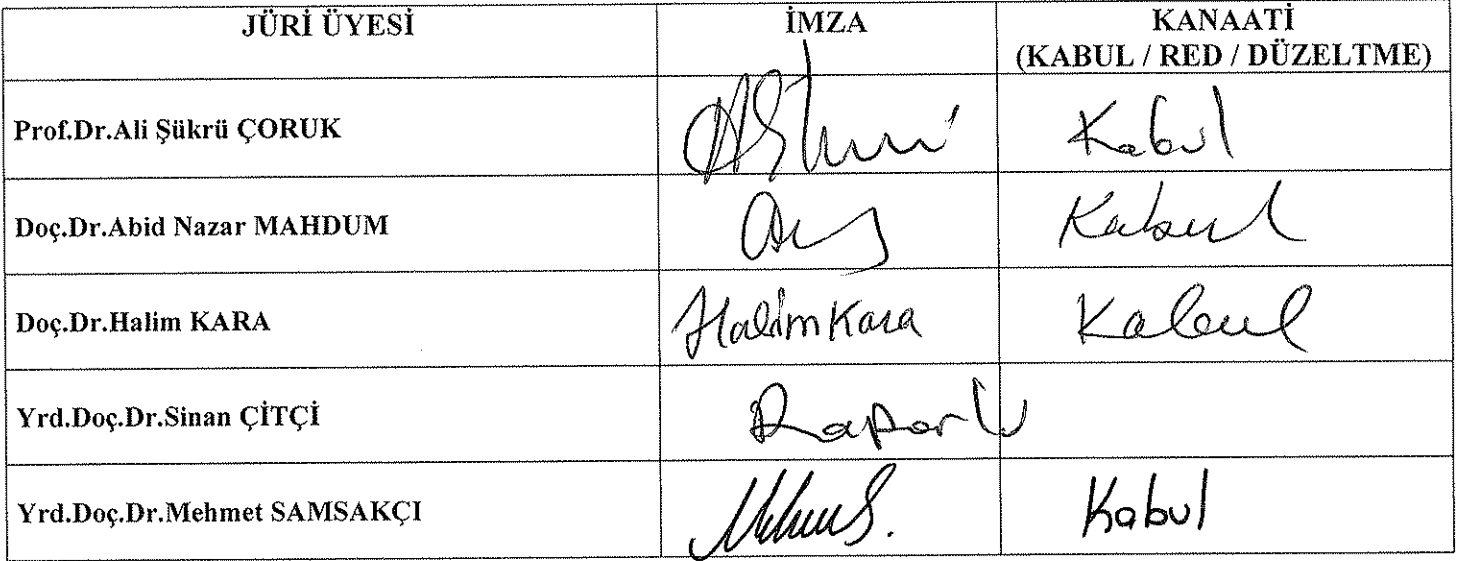 JÜRİ ÜYESİ İMZA KANAATİ
(KABUL / RED / DÜZELTME)
Prof.Dr.Ali Şükrü ÇORUK Kabul
Doç.Dr.Abid Nazar MAHDUM Kabul
Doç.Dr.Halim KARA Halim Kara Kabul
Yrd.Doç.Dr.Sinan ÇİTÇİ Raporlu
Yrd.Doç.Dr.Mehmet SAMSAKÇI Kabul